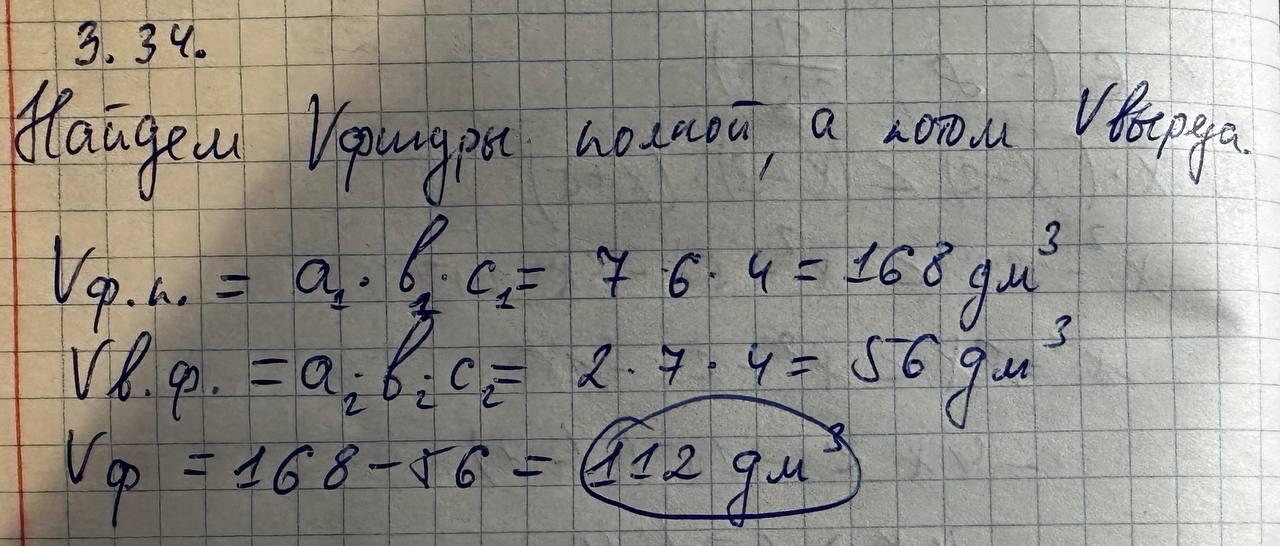 3.34.
Найдем Vфигуры полной, а потом Vвыреза.
Vф.п. = a₁·b₁·c₁ = 7·6·4 = 168 дм³
Vв.ф. = a₂·b₂·c₂ = 2·7·4 = 56 дм³
Vф = 168 - 56 = 112 дм³